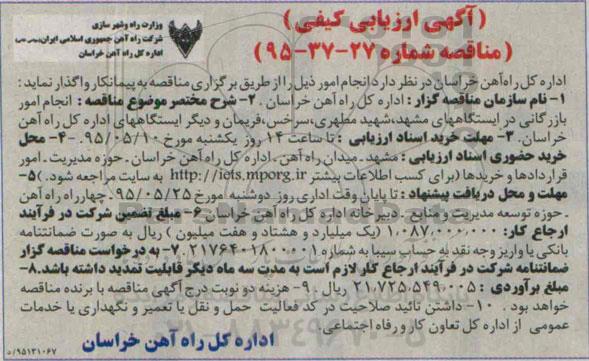 (آگهی ارزیابی کیفی)
(مناقصه شماره ۲۷-۳۷-۹۵)
وزارت راه وشهر سازی
شرکت راه آهن جمهوری اسلامی ایران(سهامی خاص)
اداره کل راه آهن خراسان
اداره کل راه‌آهن خراسان در نظر دارد انجام امور ذیل را از طریق برگزاری مناقصه به پیمانکار واگذار نماید :
۱- نام سازمان مناقصه گزار : اداره کل راه آهن خراسان . ۲- شرح مختصر موضوع مناقصه : انجام امور
بازرگانی در ایستگاههای مشهد،شهید مطهری،سرخس،فریمان و دیگر ایستگاههای اداره کل راه آهن
خراسان. ۳- مهلت خرید اسناد ارزیابی : تا ساعت ۱۴ روز یکشنبه مورخ ۹۵/۰۵/۱۰. ۴- محل
خرید حضوری اسناد ارزیابی : مشهد ـ میدان راه آهن ـ اداره کل راه آهن خراسان ـ حوزه مدیریت ـ امور
قراردادها و خریدها (برای کسب اطلاعات بیشتر http://iets.mporg.ir به سایت مراجعه شود .) ۵-
مهلت و محل دریافت پیشنهاد : تا پایان وقت اداری روز دوشنبه مورخ ۹۵/۰۵/۲۵ ـ چهارراه راه آهن
ـ حوزه توسعه مدیریت و منابع ـ دبیرخانه اداره کل راه آهن خراسان. ۶- مبلغ تضمین شرکت در فرآیند
ارجاع کار: ۱,۰۸۷,۰۰۰,۰۰۰ (یک میلیارد و هشتاد و هفت میلیون ) ریال به صورت ضمانتنامه
بانکی یا واریز وجه نقد به حساب سیبا به شماره ۲۱۷۶۴۰۱۸۰۰۰۰۱. ۷- به درخواست مناقصه گزار
ضمانتنامه شرکت در فرآیند ارجاع کار لازم است به مدت سه ماه دیگر قابلیت تمدید داشته باشد. ۸-
مبلغ برآوردی : ۲۱,۷۲۵,۵۴۹,۰۰۵ ریال. ۹- هزینه دو نوبت درج آگهی مناقصه با برنده مناقصه
خواهد بود . ۱۰- داشتن تائید صلاحیت در کد فعالیت حمل و نقل یا تعمیر و نگهداری یا خدمات
عمومی از اداره کل تعاون کار و رفاه اجتماعی.
اداره کل راه آهن خراسان
۹۵۱۳۱۰۶۷/د